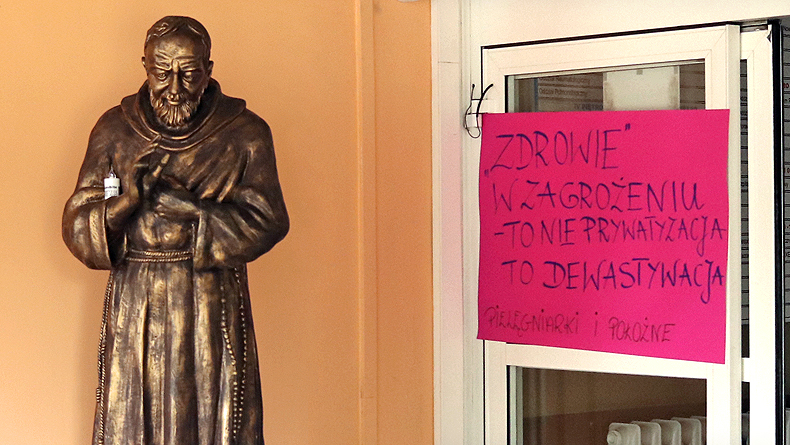 ZDROWIE"
„W ZAGROŻENIU
-TO NIE PRYWATYZACJA
TO DEWASTYWACJA
PIELĘGNIARKI I POŁOŻNE